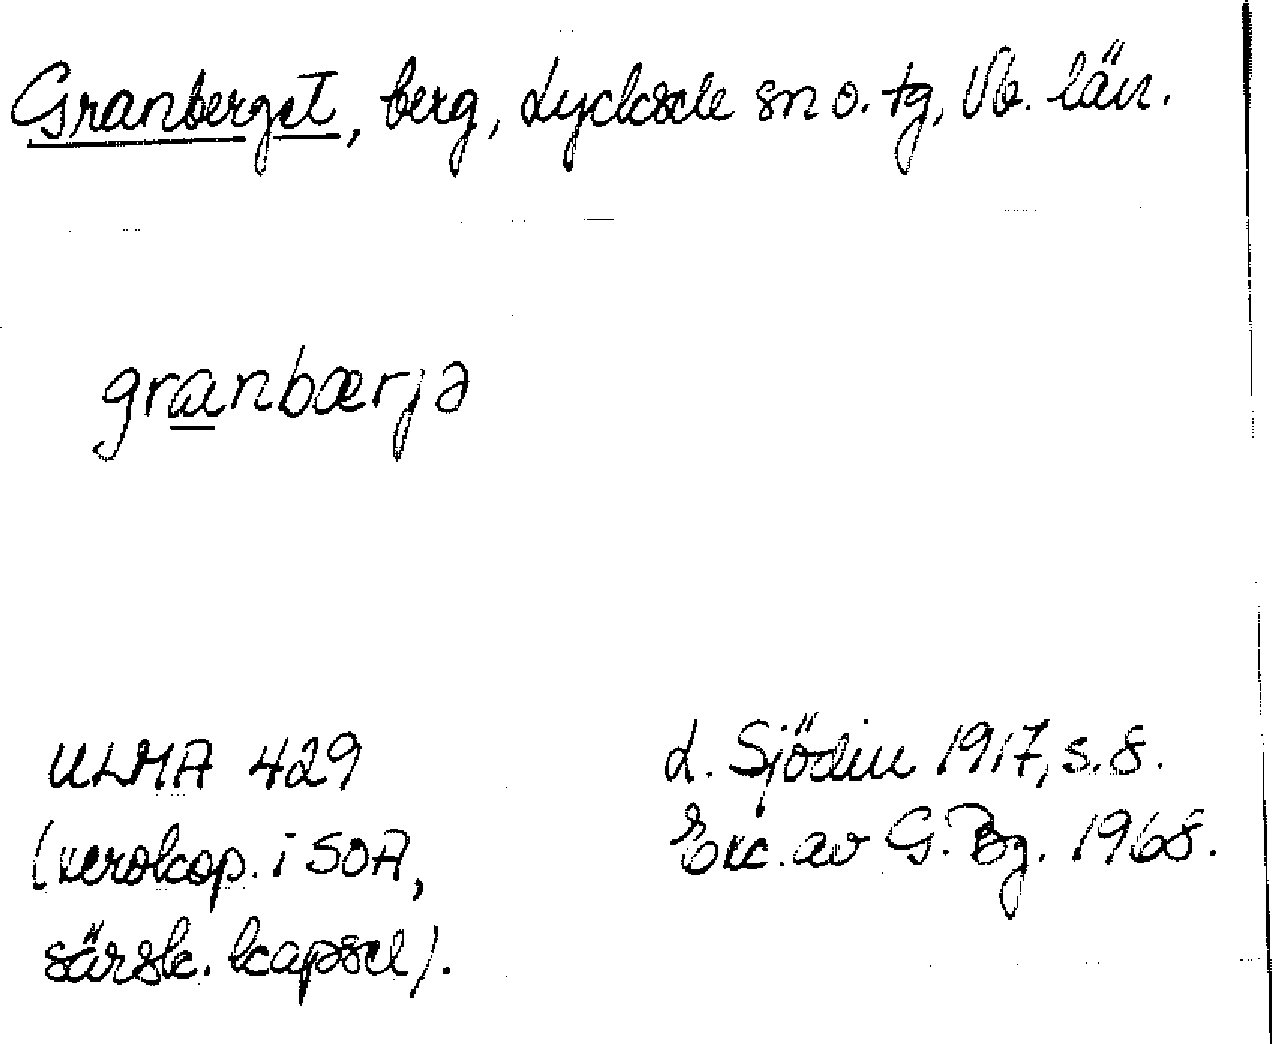 Granberget, berg, Lycksele sn o. tg, Vb. län.
granbærjə
ULMA 429
(xerokop. i SOA,
särsk. kapsel).
L. Sjödin 1917, s. 8.
Exc. av G. Bg. 1968.